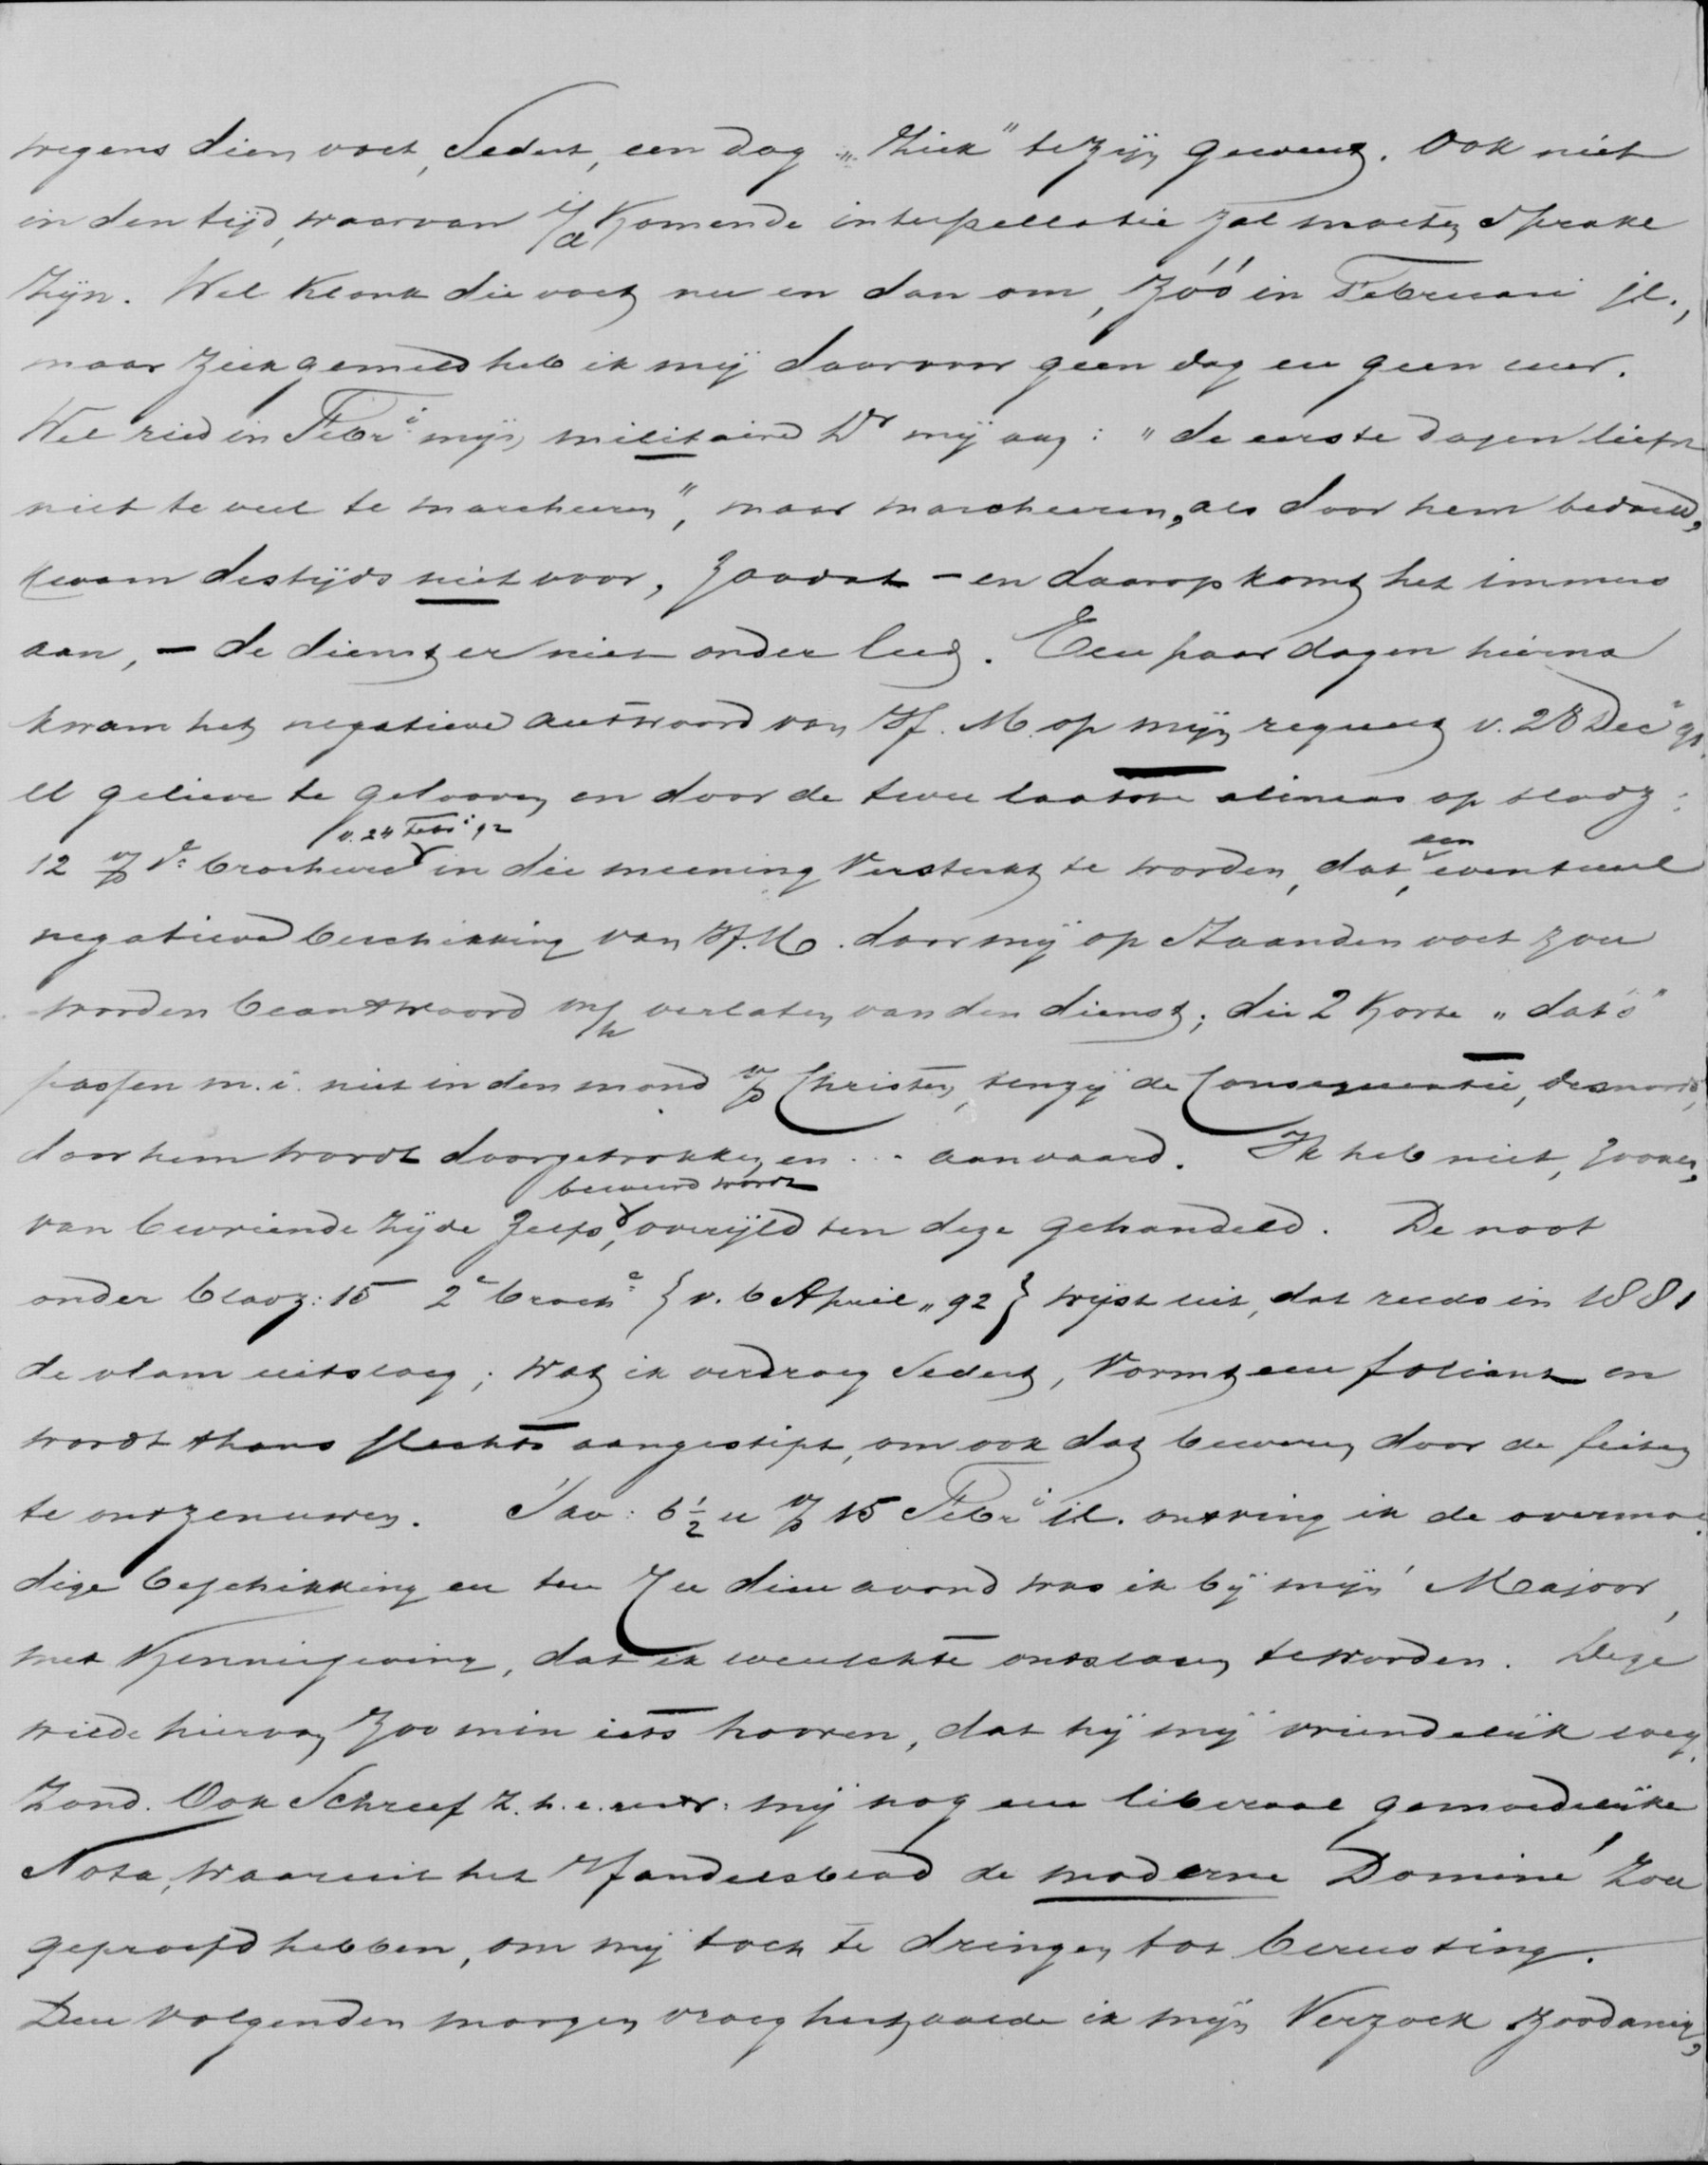 wegens dien voet, sedert, een dag „ziek” te zijn geweest. Ook niet
in den tijd, waarvan i/d komende interpellatie zal moeten sprake
zijn. Wel klonk die voet nu en dan om, zóó in Februari jl.,
maar ziek gemeld heb ik mij daarvoor geen dag en geen uur.
Wel ried in Febri mijn militaire Dr mij aan: "de eerste dagen liefst
niet te veel te marcheeren", maar marcheeren, als door hem bedoeld,
kwam destijds niet voor, zoodat – en daarop komt het immers
aan, – de dienst er niet onder leed. Een paar dagen hierna
kwam het negatieve antwoord van H.M. op mijn request v. 28 Dec 91.
U gelieve te gelooven en door de twee laatste alineas op bladz:
v. 24 Febr: 92 een
12 v/d brochure in die meening versterkt te worden, dat, eventueel
negatieve beschikking van H.M. door mij op staanden voet zou
worden beantwoord m/h verlaten van den dienst; die 2 korte „dat's”
passen m.i. niet in den mond v/d Christen, tenzij de consequentie, desnoods,
door hem wordt doorgetrokken en ... aanvaard. Ik heb niet, zooals,
beweerd wordt
van bevriende zijde zelfs, overijld ten deze gehandeld. De noot
onder bladz: 15 2e broch: {v. 6 April „92} wijst uit, dat reeds in 1881
de vlam uitsloeg; wat ik verdroeg sedert, vormt een foliant en
wordt thans slechts aangestipt, om ook dat beweren door de feiten
te ontzenuwen. 's av: 6½ u v/d 15 Febri jl. ontving ik de overmoe-
dige beschikking en ten 7 u dien avond was ik bij mijn Majoor,
met kennisgeving, dat ik wenschte ontslagen te worden. Deze
wilde hiervan zoo min iets hooren, dat hij mij vriendelijk weg
zond. Ook schreef mij nog een liberaal gemoedelijke
Nota, waaruit het Handelsblad de moderne Dominé zou
geproefd hebben, om mij toch te dringen tot berusting.
Den volgenden morgen vroeg herhaalde ik mijn verzoek zoodanig,